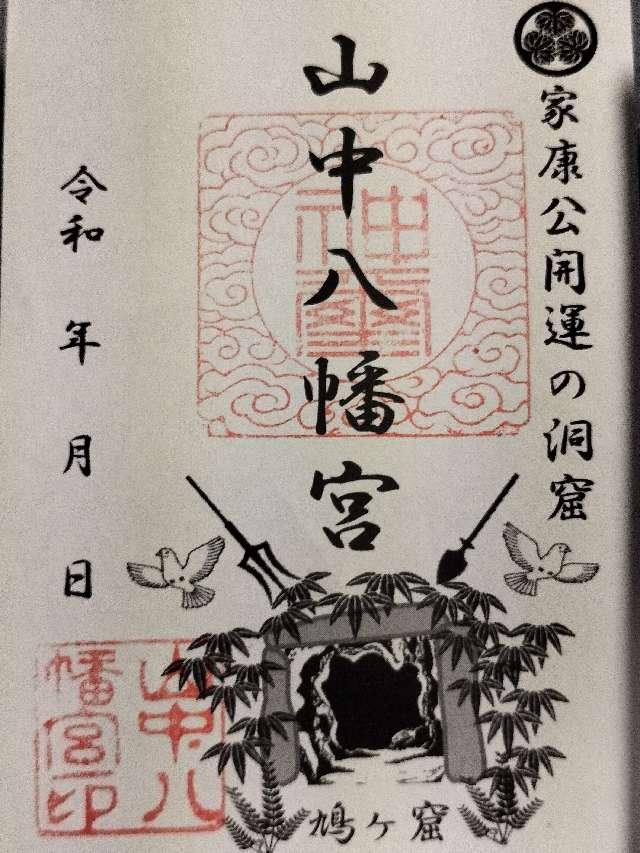 家康公開運の洞窟
山中八幡宮
令和 年 月 日
鳩ヶ窟
山中八
幡宮印